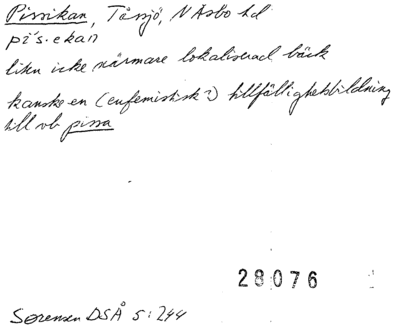 Pissikan, Tåsjö, N Åsbo hd
pi's.ekan
liten icke närmare lokaliserad bäck
kanske en (eufemistisk?) tillfällighetsbildning
till vb pissa
28076
Sørensen DSÅ s: 244